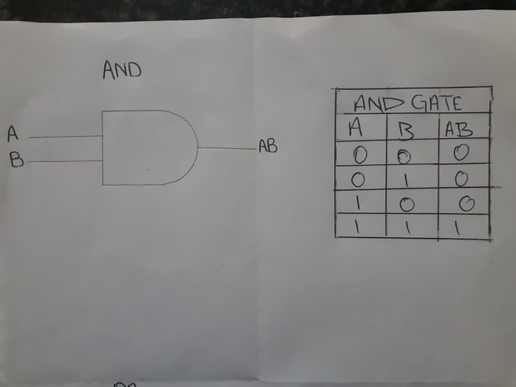 AND
A
B
AB
AND GATE
A B AB
0 0 0
0 1 0
1 0 0
1 1 1